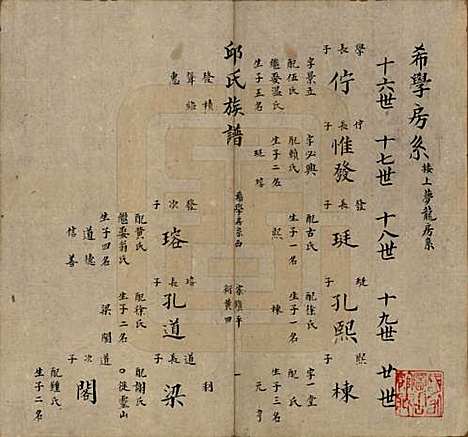 希學房系 接上夢龍房系
十六世 十七世 十八世 十九世 廿世
學長子 佇 字景立 配伍氏 繼娶温氏 生子五名
佇長子 惟發 字必興 配賴氏 生子二名 珽 瑢
發長子 珽 配古氏 生子一名 熙
珽子 孔熙 配徐氏 生子一名 棟
熙子 棟 字一堂 配氏 生子三名 元亨
利
邱氏族譜 希學房系 一
發次子 瑢 配黃氏 繼娶翁氏 生子四名 道 德 信 善
瑢長子 孔道 配徐氏 生子二名 梁 閣
道長子 梁 配謝氏
道次子 閣 配鍾氏 生子二名